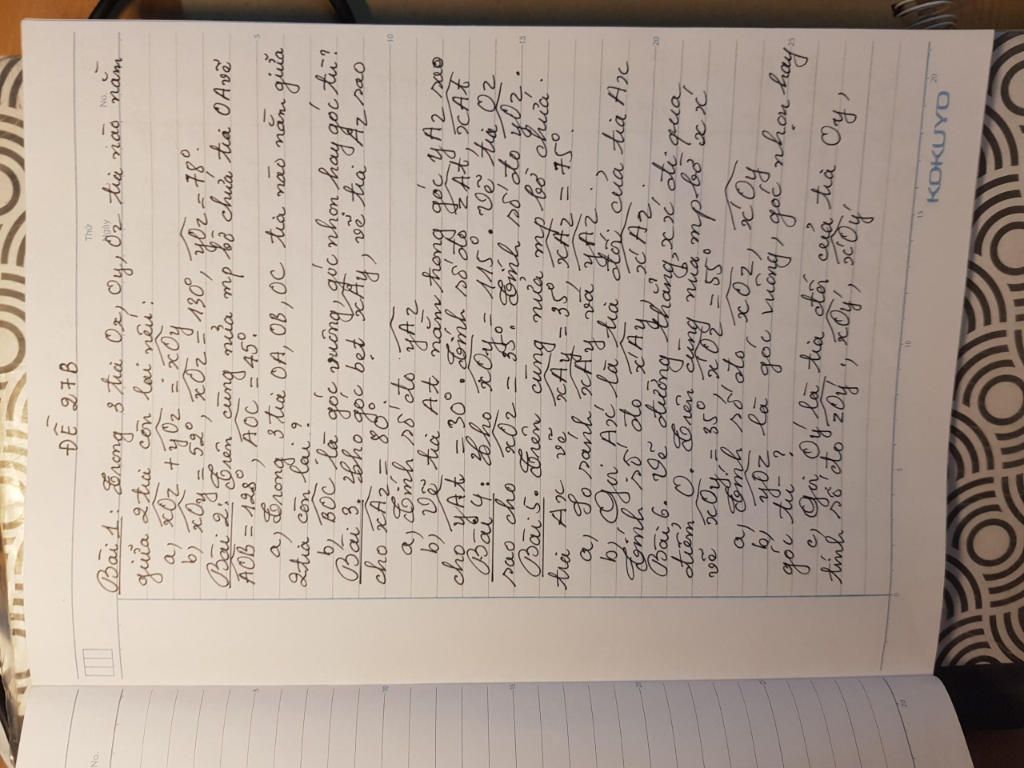 ĐỀ 27B
Thứ
Ngày
No.
Bài 1: Trong 3 tia Ox, Oy, Oz tia nào nằm
giữa 2 tia còn lại nếu:
a) xOz + yOz = xOy
b) xOy = 52°, xOz = 130°, yOz = 78°.
Bài 2: Trên cùng nửa mp bờ chứa tia OA vẽ
AOB = 128°, AOC = 45°.
a) Trong 3 tia OA, OB, OC tia nào nằm giữa
2 tia còn lại?
b) BOC là góc vuông, góc nhọn hay góc tù?
Bài 3. Cho góc bẹt xAy, vẽ tia Az sao
cho xAz = 80°.
a) Tính số đo yAz
b) Vẽ tia At nằm trong góc yAz sao
cho yAt = 30°. Tính số đo zAt, xAt
Bài 4: Cho xOy = 115°. Vẽ tia Oz
sao cho xOz = 35°. Tính số đo yOz.
Bài 5. Trên cùng nửa mp bờ chứa
tia Ax vẽ xAy = 35°, xAz = 75°.
a) So sánh xAy và yAz.
b) Gọi Ax' là tia đối của tia Ax
Tính số đo x'Ay, x'Az.
Bài 6. Vẽ đường thẳng xx' đi qua
điểm O. Trên cùng nửa mp bờ xx'
vẽ xOy = 35° xOz = 55°
a) Tính số đo xOz, x'Oy
b) yOz là góc vuông, góc nhọn hay
góc tù?
c, Gọi Oy' là tia đối của tia Oy,
tính số đo zOy', xOy', x'Oy'
KOKUYO
No.